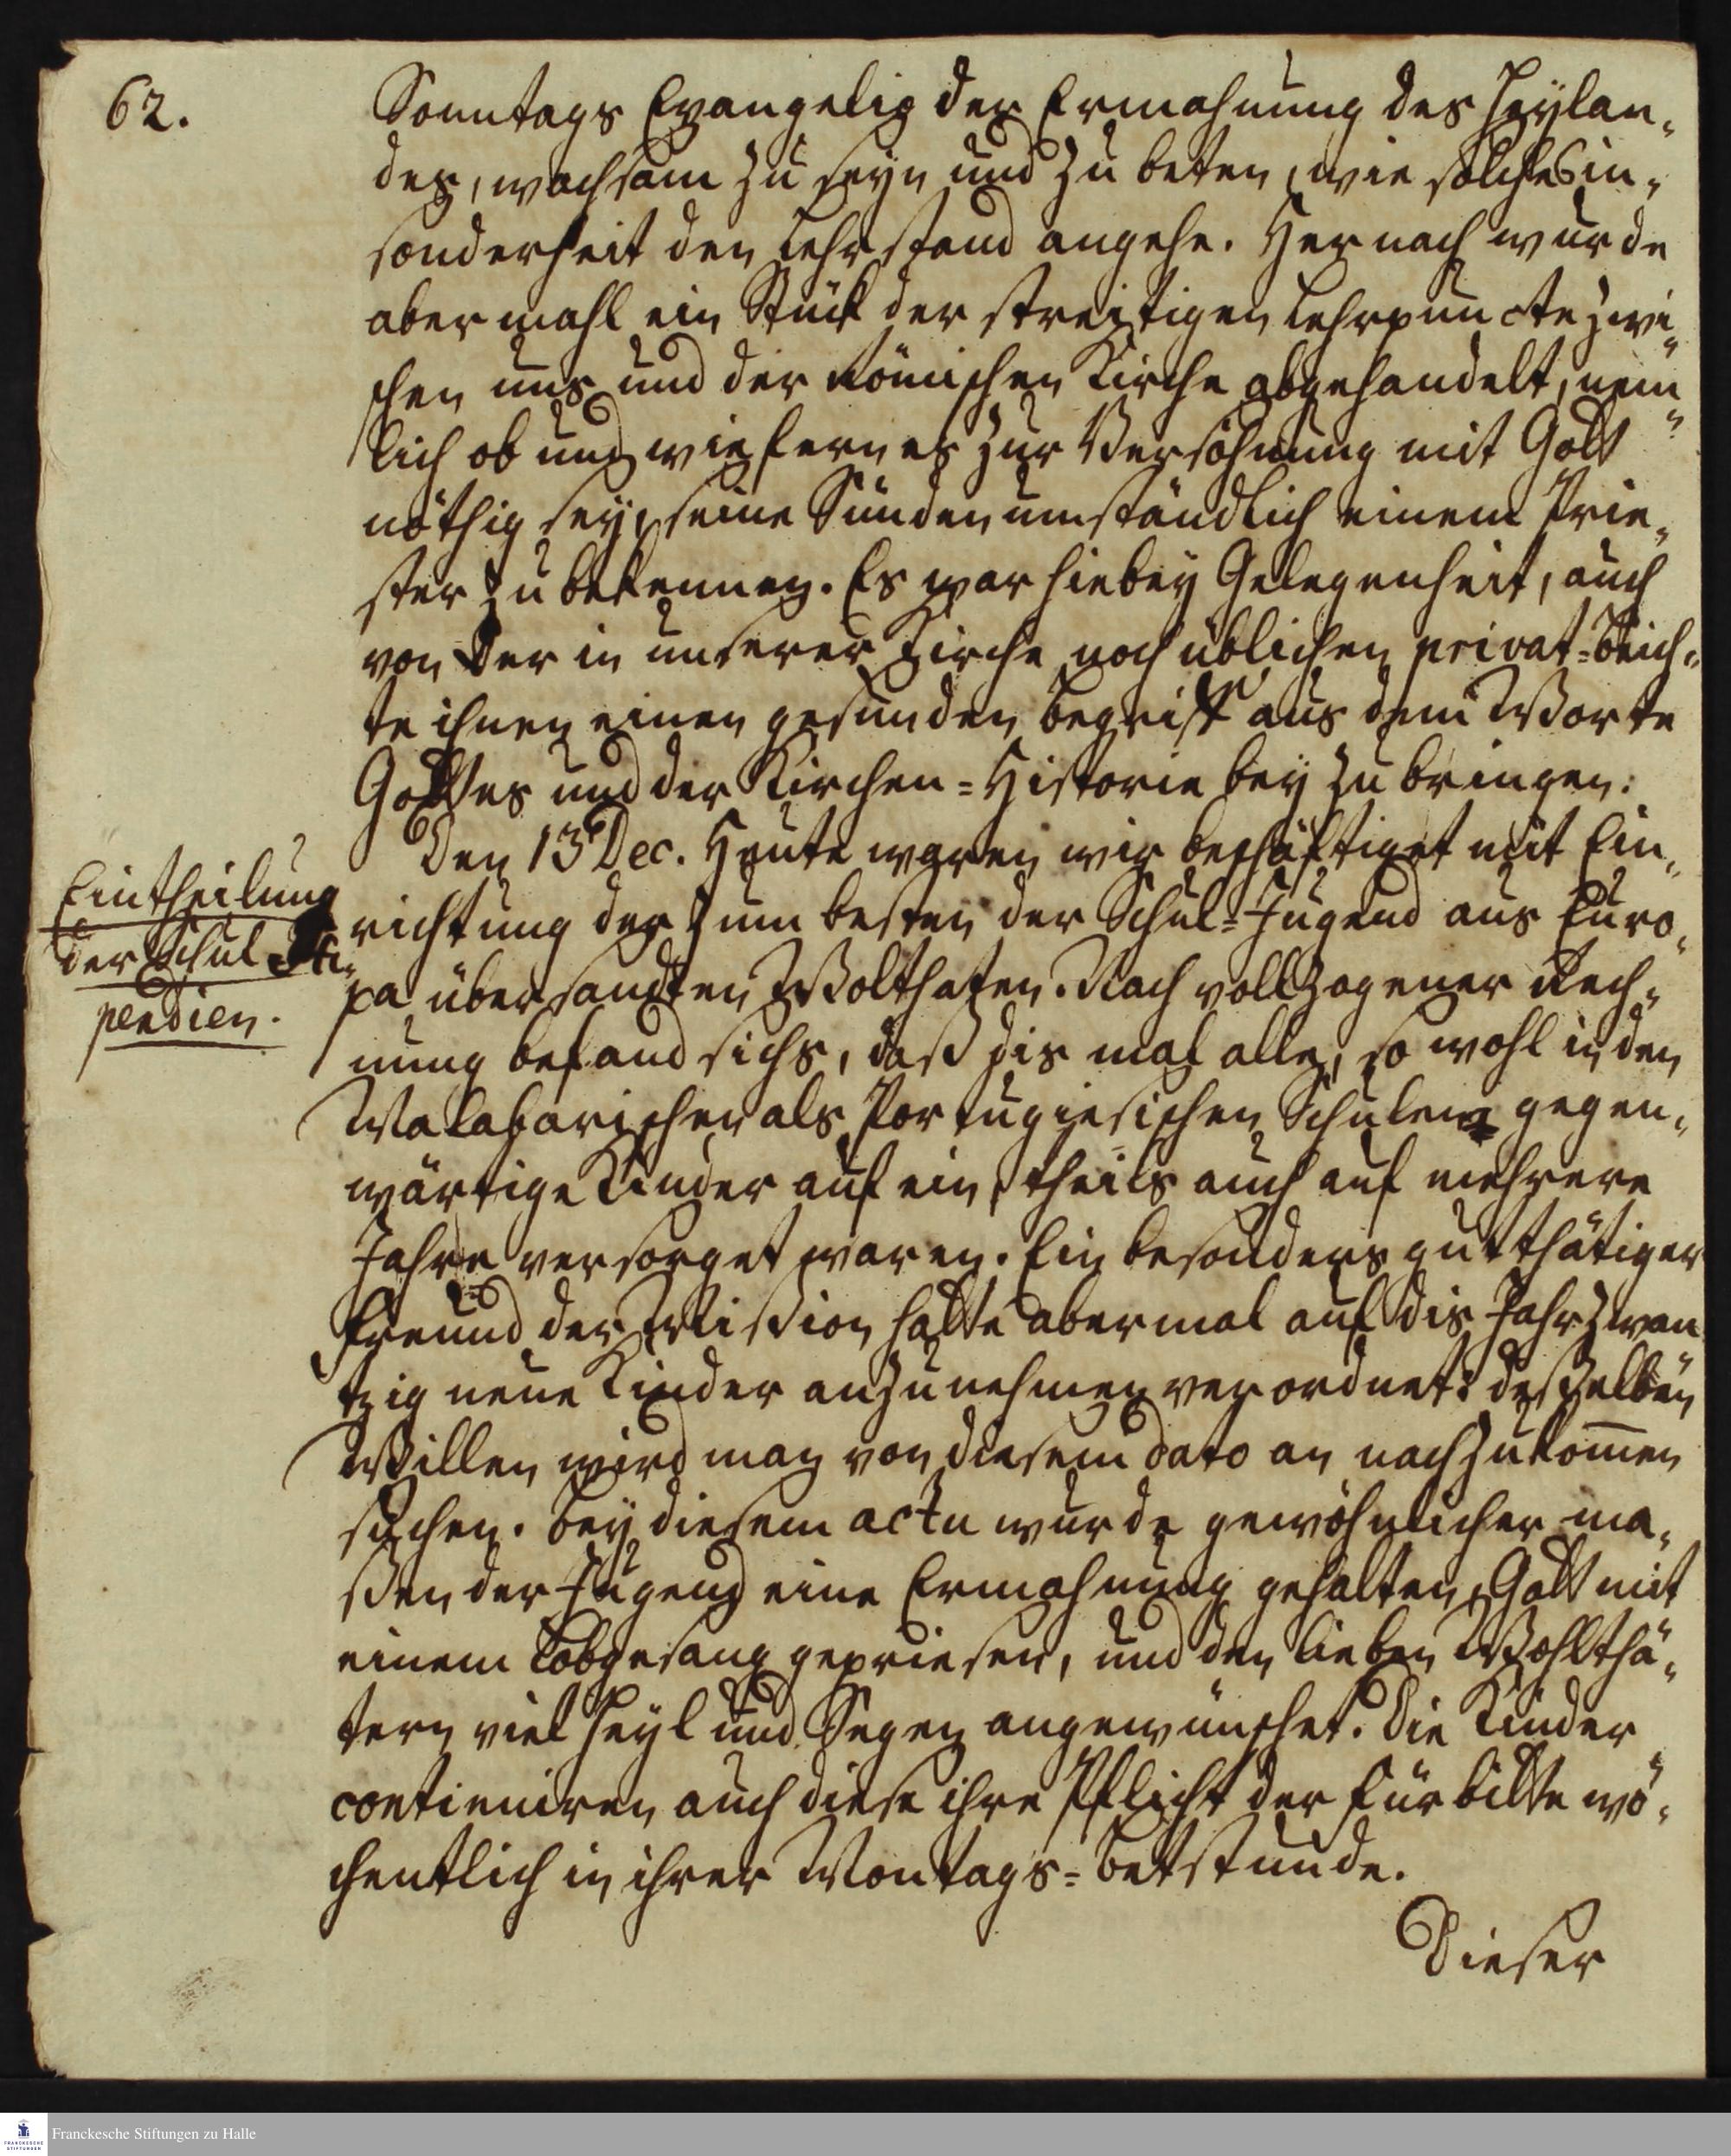 62.
Sonntags Evangelio der Ermahnung des Heylan-
des, wachsam zu seyn und zu beten, wie solches in-
sonderheit den Lehrstand angehe. Hernach wurde
abermahl ein Stück der streitigen Lehrpuncte zwi-
schen uns und der Römischen Kirche abgehandelt, nem-
lich ob und wiefern es zur Versöhnung mit Gott
nöthig sey, seine Sünden umständlich einem Prie-
ster zu bekennen. Es war hiebey Gelegenheit, auch
von der in unserer Kirche noch üblichen privat-Beich-
te ihnen einen gesunden Begriff aus dem Worte
Gottes und der Kirchen-Historie bey zu bringen.
Den 13 Dec. Heute waren wir beschäftiget mit Ein-
Eintheilung
der Schul-Sti-
pendien.
richtung der zum besten der Schul-Jugend aus Euro-
pa übersandten Wolthaten. Nach vollzogener Rech-
nung befand sichs, daß dis mal alle, so wohl in den
Malabarischen als Portugiesischen Schulen gegen-
wärtige Kinder auf ein, theils auch auf mehrere
Jahre versorget waren. Ein besonders gutthätiger
Freund der Mission hatte abermal auf dis Jahr zwan-
tzig neue Kinder anzunehmen verordnet: desselben
Willen wird man von diesem dato an nachzukom̄en
suchen. Bey diesem actu wurde gewöhnlicher ma-
ßen der Jugend eine Ermahnung gehalten, Gott mit
einem Lobgesang gepriesen, und den lieben Wohlthä-
tern viel Heyl und Segen angewünschet. Die Kinder
continuiren auch diese ihre Pflicht der Fürbitte wö-
chentlich in ihrer Montags-Betstunde.
Dieser
FRANCKESCHE
STIFTUNGEN
Franckesche Stiftungen zu Halle